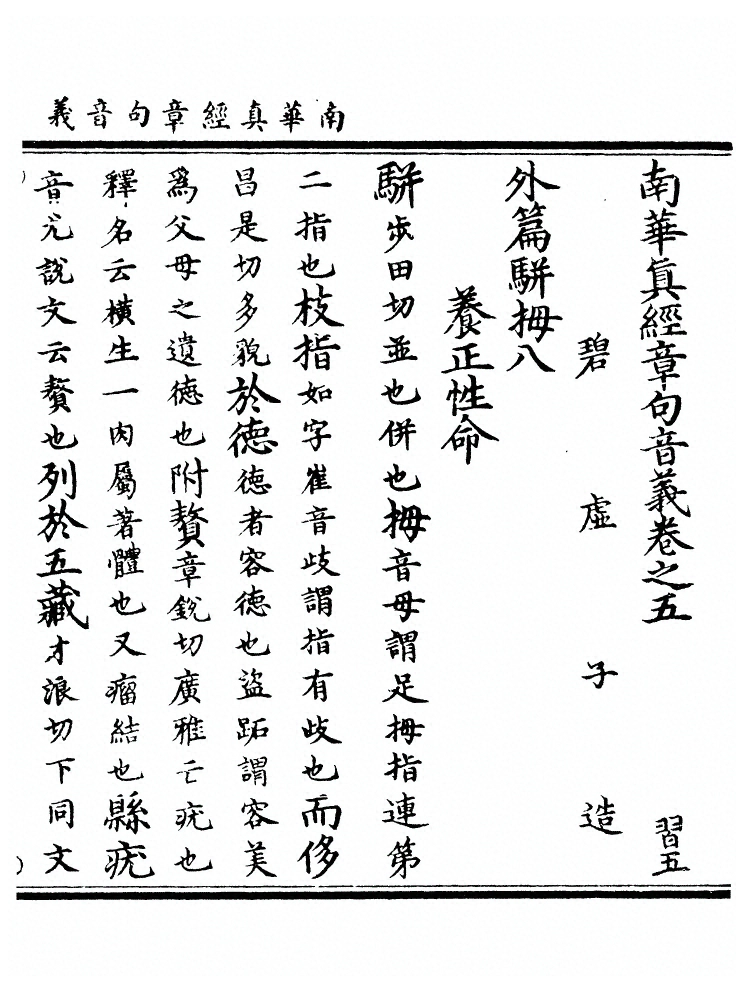 南華真經章句音義
南華真經章句音義卷之五
習五
碧虛子造
外篇駢拇八
養正性命
駢步田切並也併也拇音母謂足拇指連第
二指也枝指如字崔音歧謂指有歧也而侈
昌是切多貌於德德者容德也盜跖謂容美
爲父母之遺德也附贅章銳切廣雅云疣也
釋名云橫生一肉屬著體也又瘤結也縣疣
音尤說文云贅也列於五藏才浪切下同文